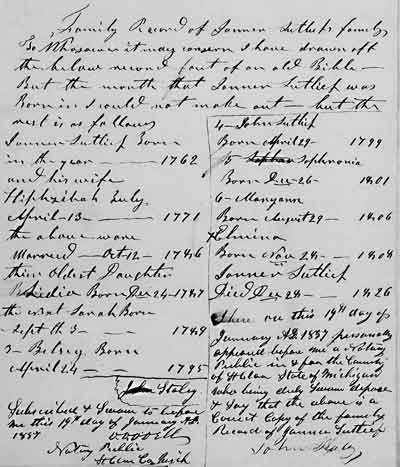 Family Record of Jonner Sutliefs family
To Whosoever it may concern I have drawn off
the below record part of an old Bible —
But the month that Jonner Sutlief was
Born in I could not make out — but the
rest is as follows
Jonner Sutlief Born
in the year — 1762
and his wife
Hiphzibah Euly
April — 13 — 1771
the above ware
Married — Oct 12 — 1786
their Oldest Daughter
Lydia Born Dec 24 — 1787
the next Sarah Born
Sept th 3 — 1789
3 — Betsey Born
April 24 — 1795
John Staley
Subscribed & Sworn to before
me this 19th day of January A.D.
1887
Notary Public
St Clair Co Mich
4 — John Sutlief
Born April 29 — 1799
5 Sophronia
Born Dec 26 — 1801
6 — Maryann
Born August 29 — 1806
Elmina
Born Nov 28 — 1808
Jonner Sutlief
Died Dec 28 — 1826
on this 19th day of
January A.D. 1887 personally
appeared before me a Notary
Public in & for the County
of St Clair State of Michigan
who being duly Sworn depose
& Say that the above is a
Correct Copy of the family
Record of Jonner Sutlief
John Staley